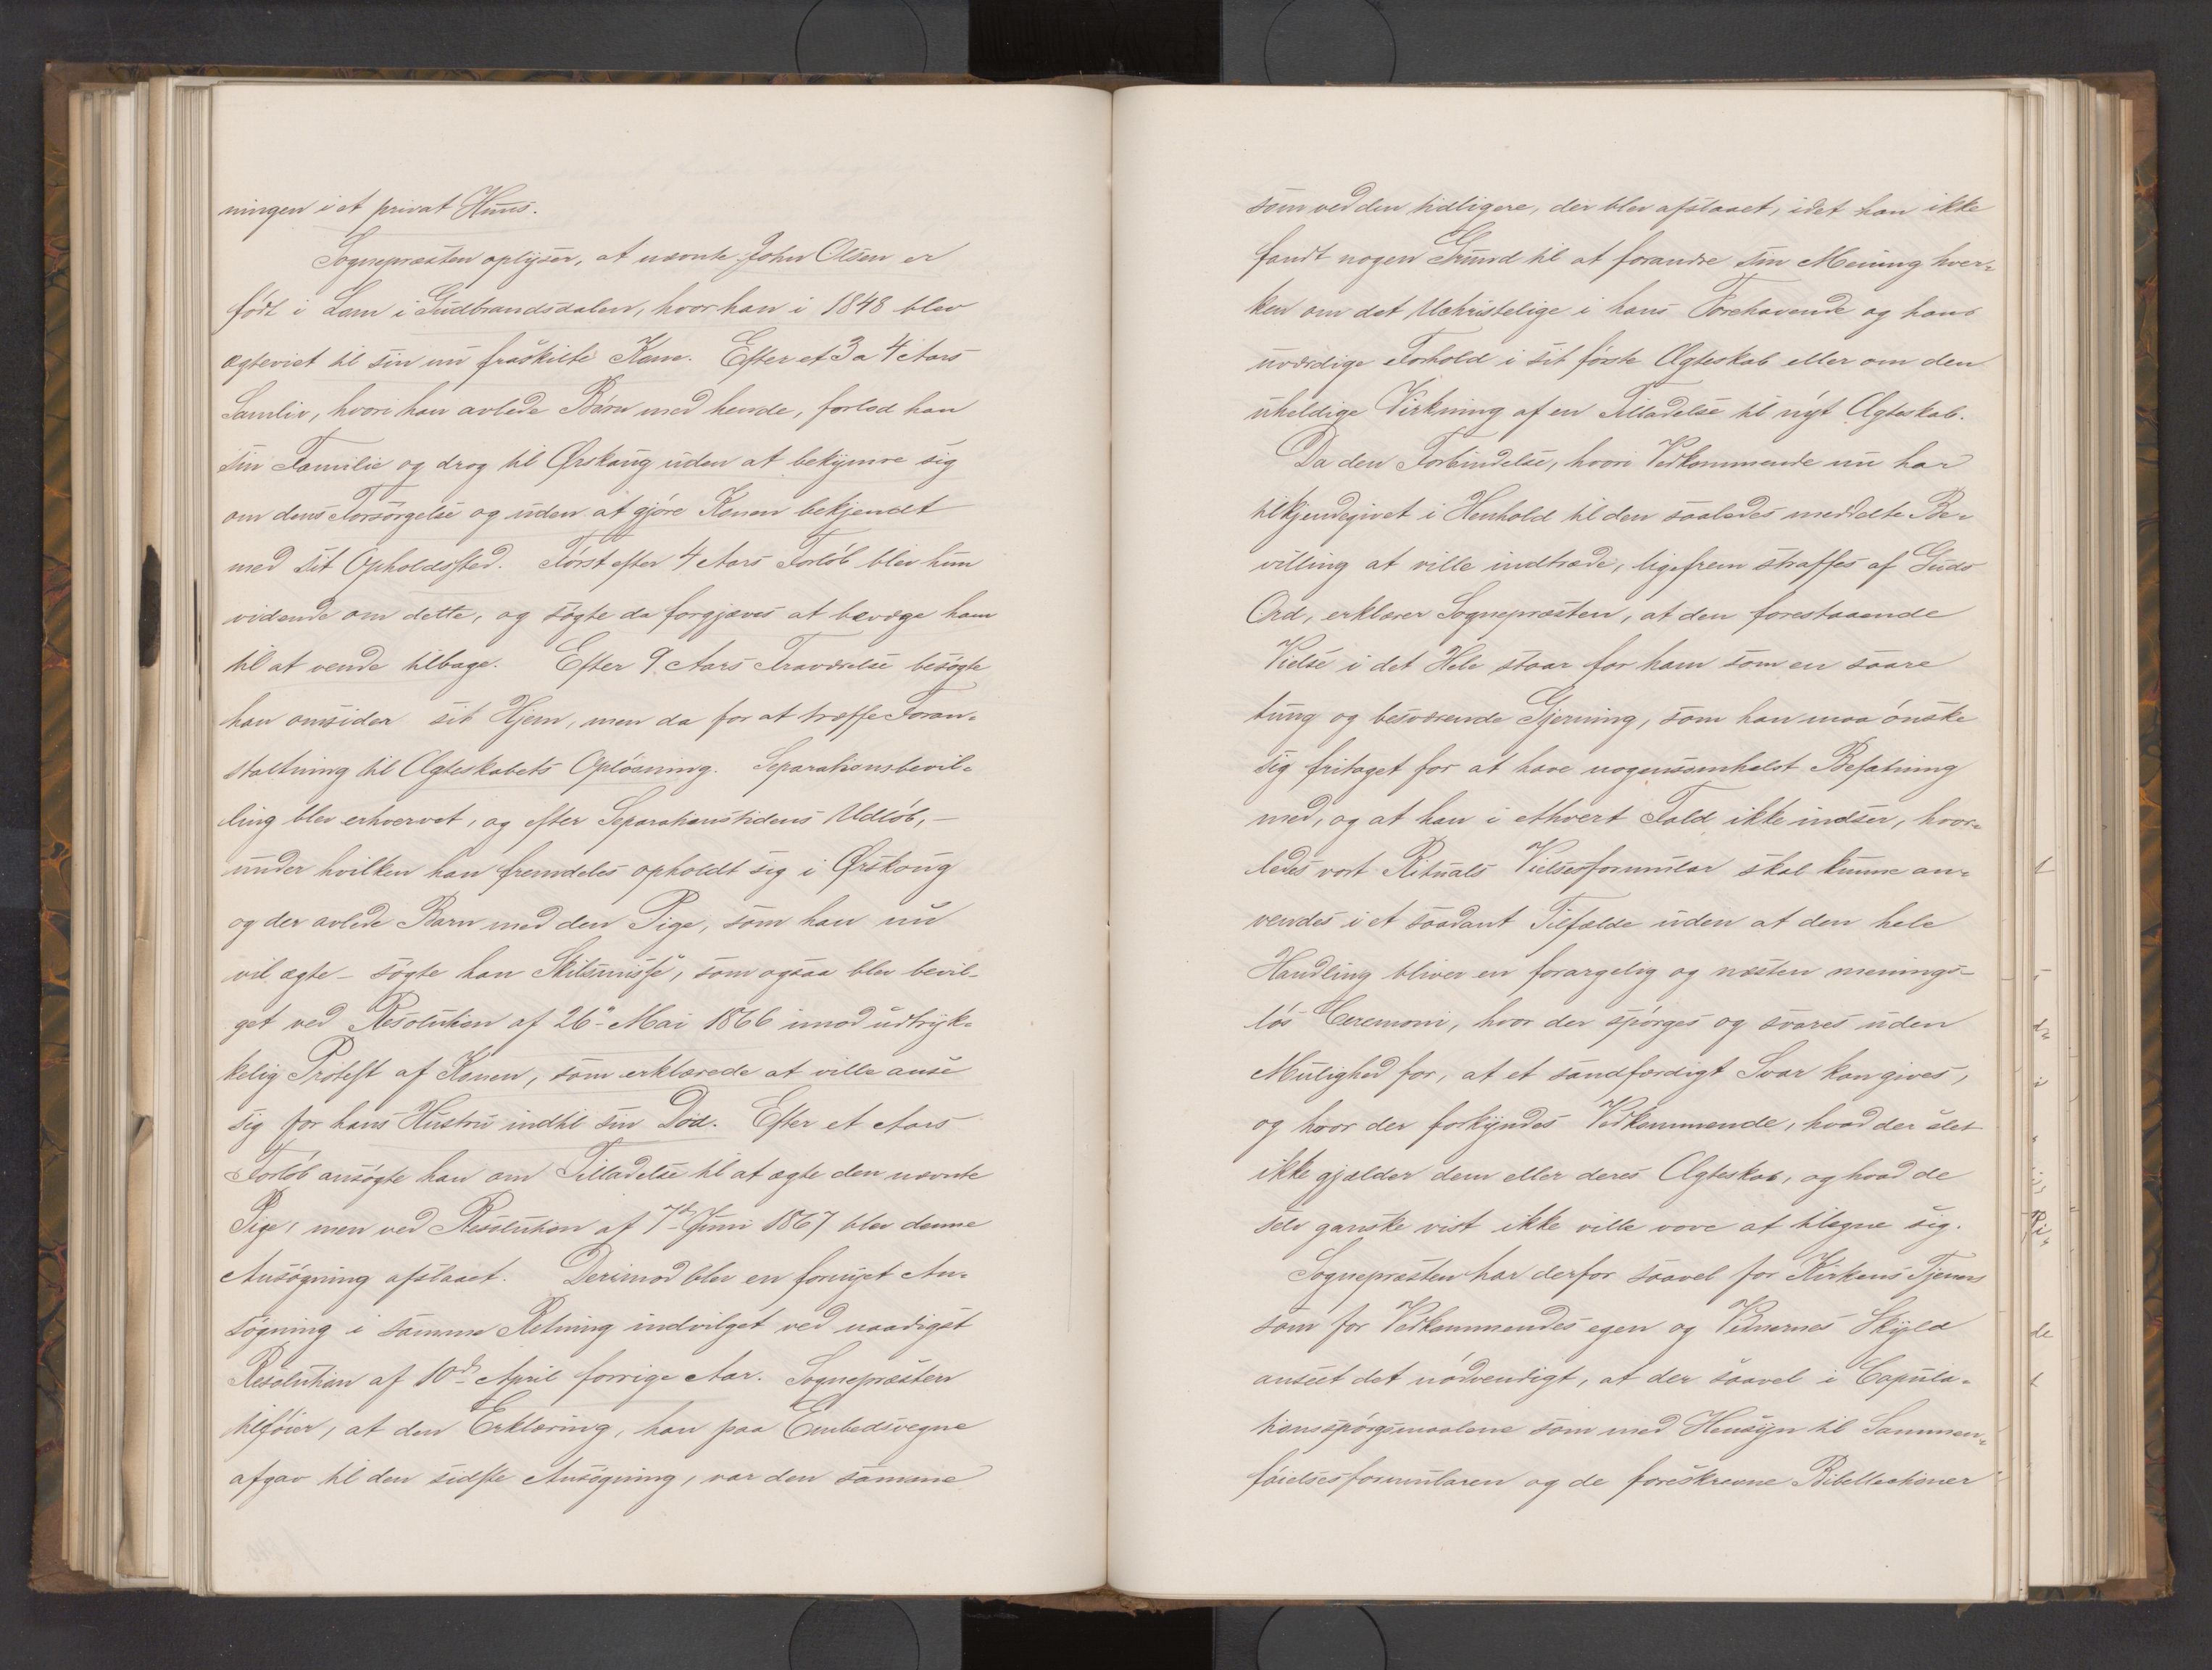 ningen i et privat Huus.
Sognepræsten oplyser, at nævnte John Olsen er
født i Lom i Gudbrandsdalen, hvor han i 1848 blev
ægteviet til sin nu fraskilte Kone. Efter et 3 a 4 Aars
Samliv, hvori han avlede Børn med hende, forlod han
sin Familie og drog til Ørskoug uden at bekymre sig
om dens Forsørgelse og uden at gjøre Konen bekjendt
med sit Opholdssted. Først efter 4 Aars Forløb blev hun
vidende om dette, og søgte da forgjæves at bevæge ham
til at vende tilbage. Efter 9 Aars Fraværelse besøgte
han omsider sit Hjem, men da for at træffe Foran-
staltning til Ægteskabets Opløsning. Separationsbevil-
ling blev erhvervet, og efter Separationstidens Udløb, –
under hvilken han fremdeles opholdt sig i Ørskoug
og der avlede Barn med den Pige, som han nu
vil ægte – søgte han Skilsmisse, som ogsaa blev bevil-
get ved Resolution af 26de Mai 1866 imod udtryk-
kelig Protest af Konen, som erklærede at ville anse
sig for hans Hustru indtil sin Død. Efter et Aars
Forløb ansøgte han om Tilladelse til at ægte den nævnte
Pige, men ved Resolution af 7de Juni 1867 blev denne
Ansøgning afslaaet. Derimod blev en fornyet An-
søgning i samme Retning indvilget ved naadigst
Resolution af 10de April forrige Aar. Sognepræsten
tilføier, at den Erklæring, han paa Embedsvegne
afgav til den sidste Ansøgning, var den samme
som ved den tidligere, der blev afslaaet, idet han ikke
fandt nogen Grund til at forandre sin Mening hver-
ken om det Uchristelige i hans Forehavende og hans
uværdige Forhold i sit første Ægteskab eller om den
uheldige Virkning af en Tilladelse til nyt Ægteskab.
Da den Forbindelse, hvori Vedkommende nu har
tilkjendegivet i Henhold til den saaledes meddelte Be-
villing at ville indtræde, ligefrem straffes af Guds
Ord, erklærer Sognepræsten, at den forestaaende
Vielse i det Hele staar for ham som en saare
tung og besværende Gjerning, som han maa ønske
sig fritaget for at have nogensomhelst Befatning
med, og at han i ethvert Fald ikke indser, hvor-
ledes vort Rituals Vielsesformular skal kunne an-
vendes i et saadant Tilfælde uden at den hele
Handling bliver en forargelig og næsten menings-
løs Ceremoni, hvor der spørges og svares uden
Mulighed for, at et sandfærdigt Svar kan gives,
og hvor der forkyndes Vedkommende, hvad der slet
ikke gjælder dem eller deres Ægteskab, og hvad de
selv ganske vist ikke ville vove at tilegne sig.
Sognepræsten har derfor saavel for Kirkens Tjeners
som for Vedkommendes egen og Vidnernes Skyld
anseet det nødvendigt, at der saavel i Copula-
tionsspørgsmaalene som med Hensyn til Sammen-
føielsesformularen og de foreskrevne Bibellectioner